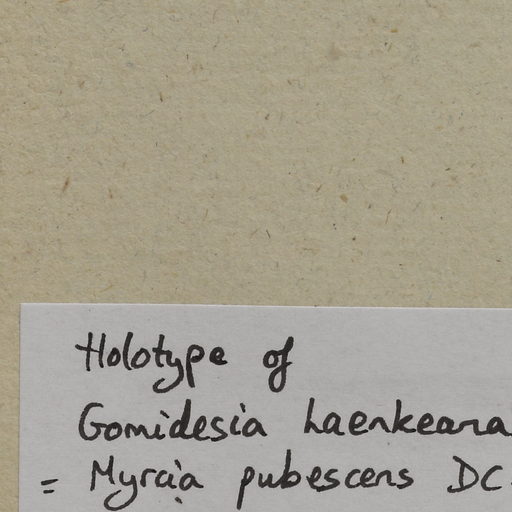 Holotype of
Gomidesia haenkeana
= Myrcia pubescens DC.